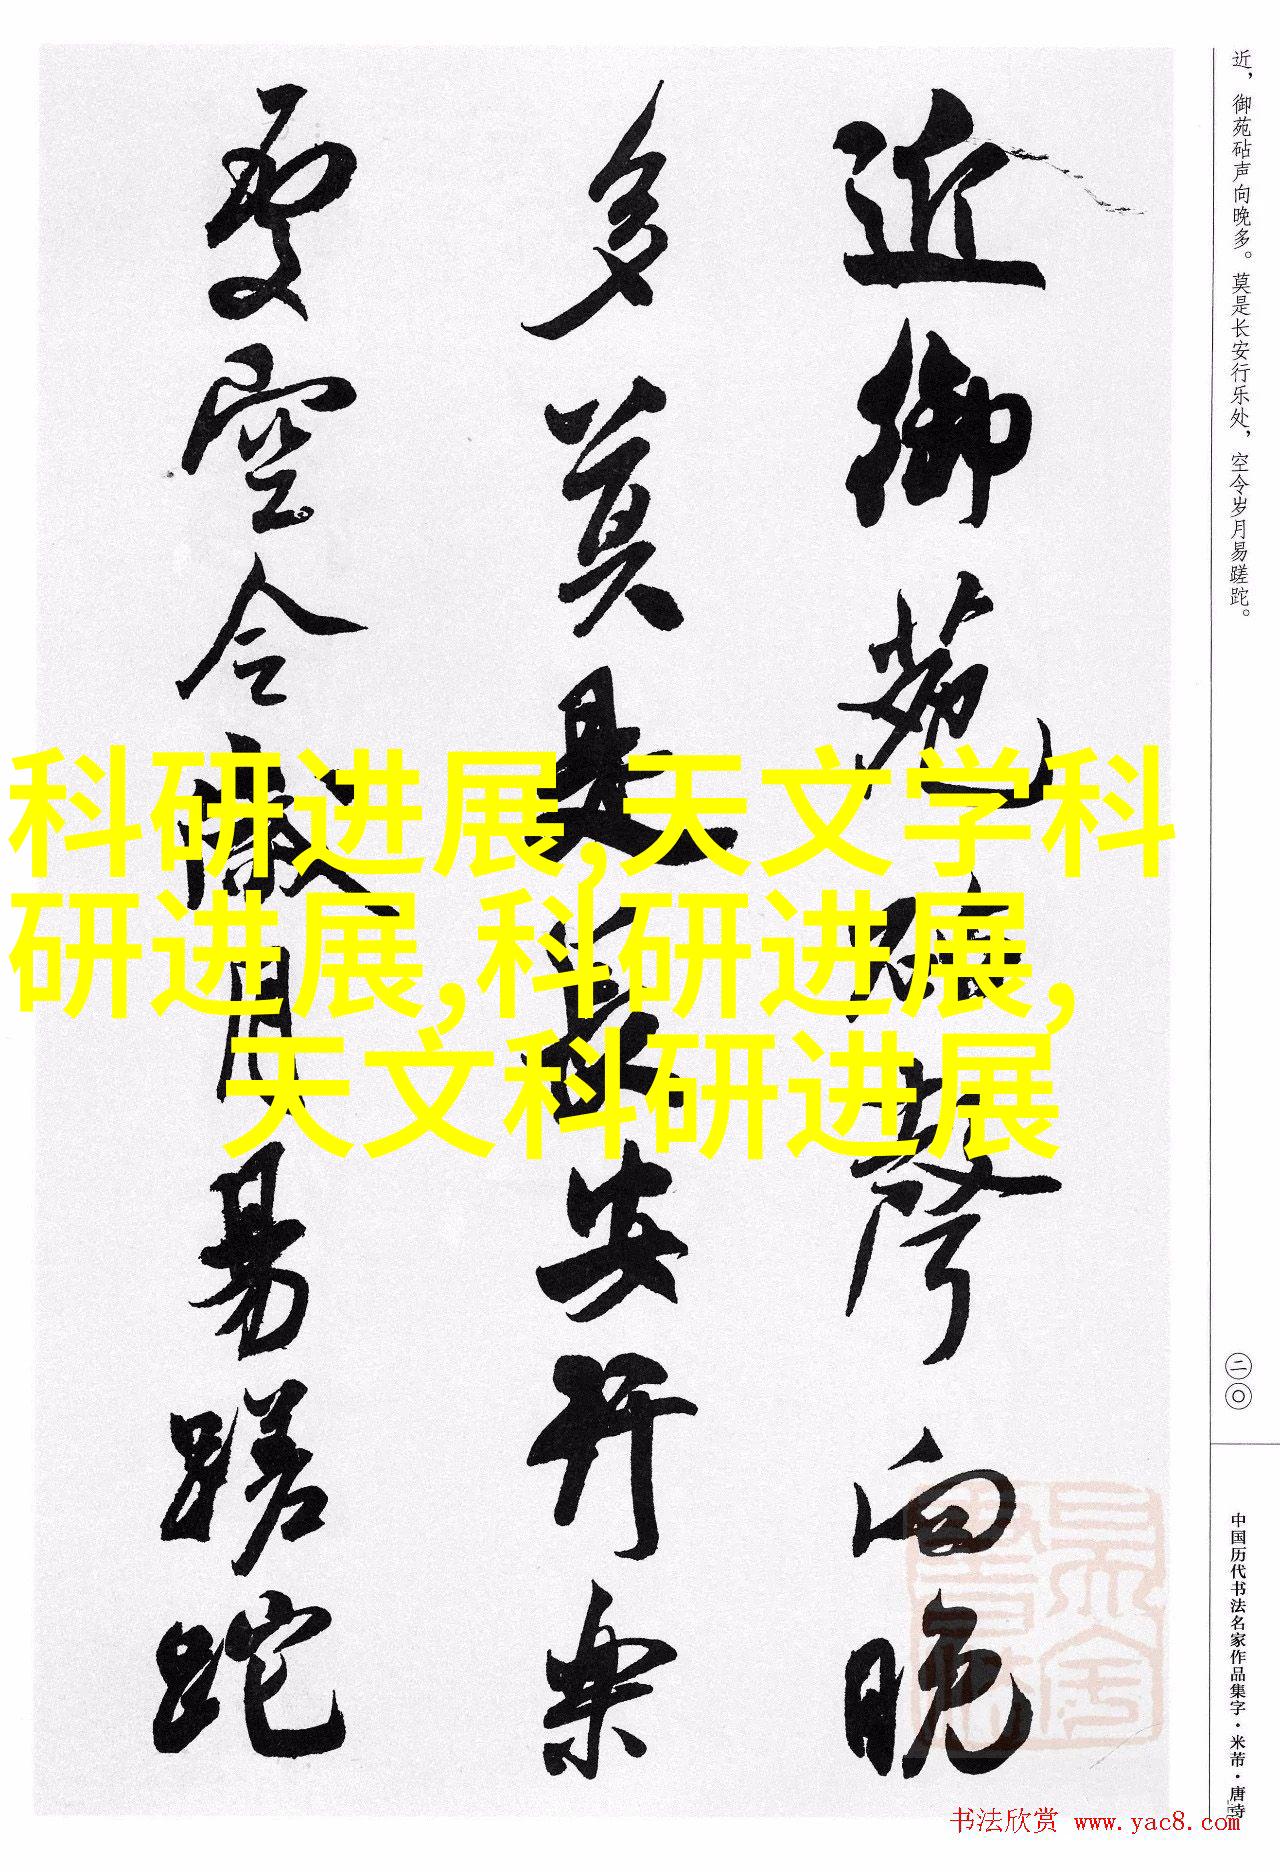 近，御苑砧声向晚多。莫是长安行乐处，空令岁月易蹉跎。
二〇
中国历代书法名家作品集字·米芾·唐诗
近御苑砧聲向晚
多莫是長安行樂
處空令歲月易蹉跎
科研进展,天文学科
研进展,科研进展,
天文科研进展
书法欣赏 www.yac8.com